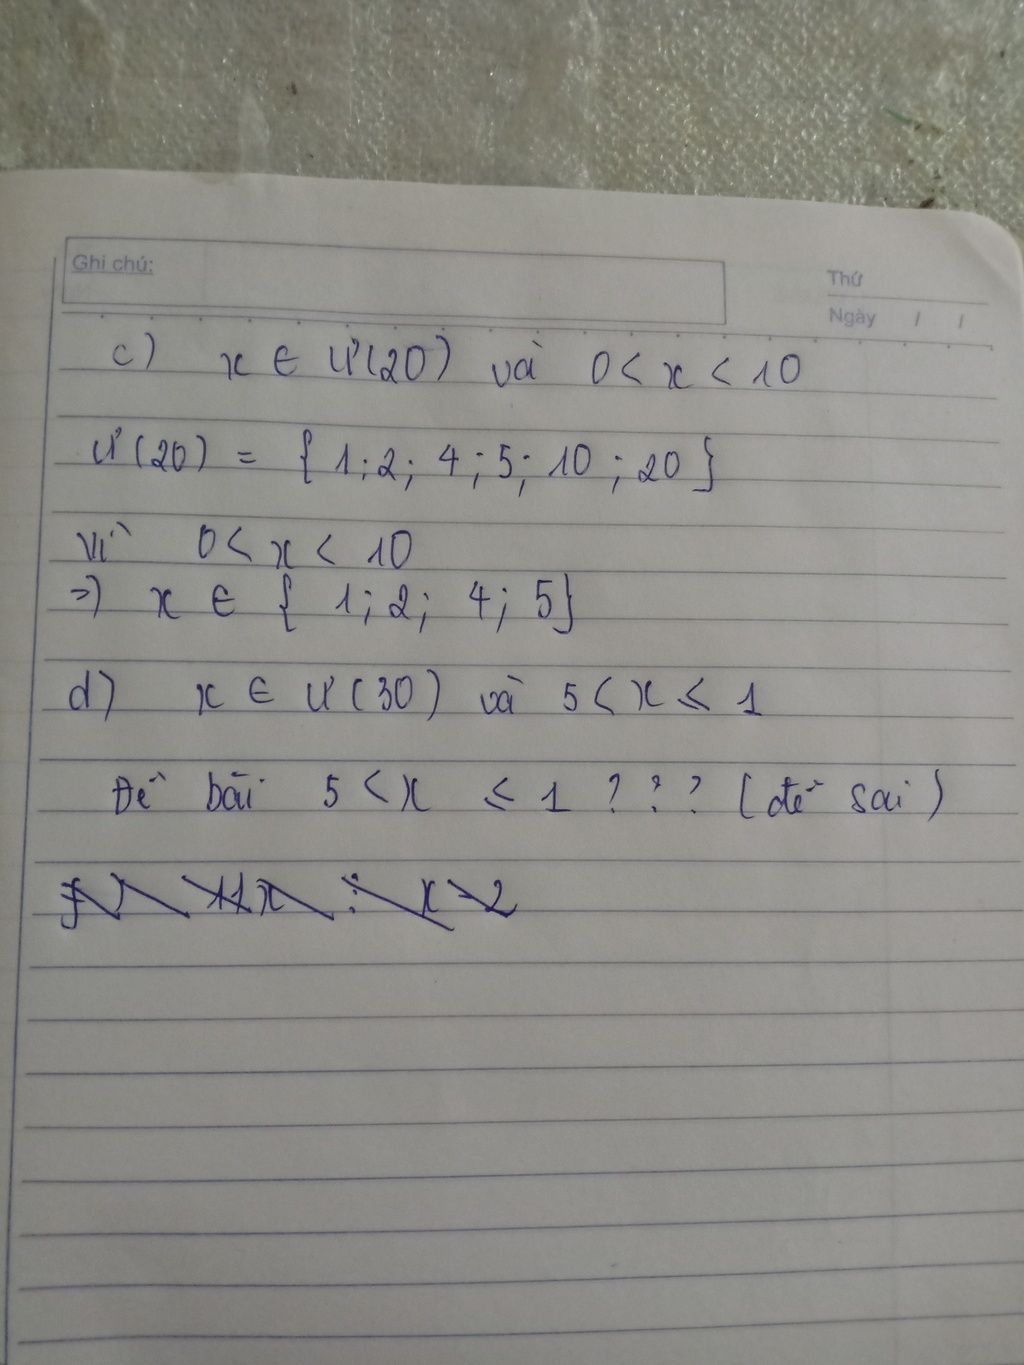 Ghi chú:
Thứ
Ngày / /
c) x ∈ Ư(20) và 0 < x < 10
Ư(20) = { 1; 2; 4; 5; 10; 20 }
Vì 0 < x < 10
=> x ∈ { 1; 2; 4; 5 }
d) x ∈ Ư(30) và 5 < x ≤ 1
Đề bài 5 < x ≤ 1 ? ? ? (đề sai)